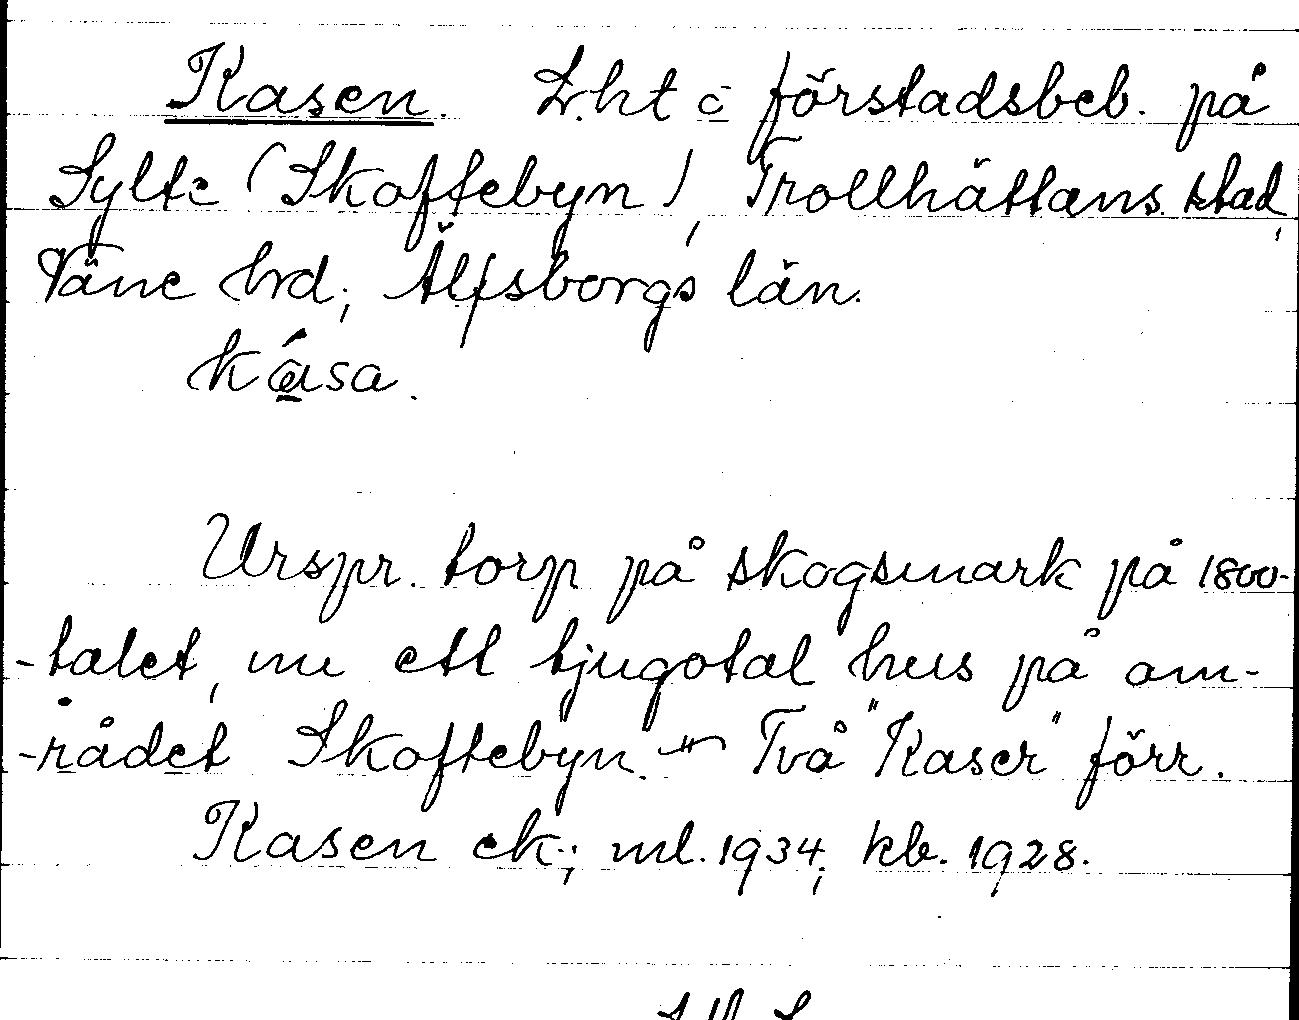 Kasen. Lht = förstadsbeb. på
Sylte (Skoftebyn), Trollhättans stad,
Väne hrd; Älfsborgs län.
kása.
Urspr. torp på skogsmark på 1800-
-talet, nu ett tjugotal hus på om-
-rådet Skoftebyn. — Två "Kaser" förr.
Kasen ek.; ml. 1934; kb. 1928.